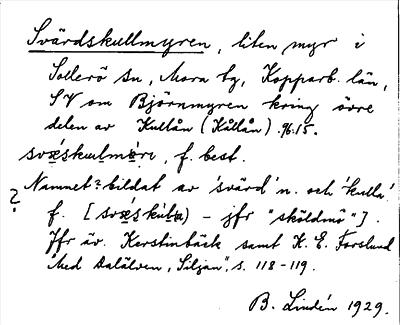 Svärdskullmyren, liten myr i
Sollerö sn, Mora tg, Kopparb. län,
SV om Björnmyren kring övre
delen av Kullån (Kållån). 96.15.
f. best.
? Namnet? bildat av 'svärd' n. och 'kulla'
f. - jfr "sköldmö"].
Jfr äv. Kerstinbäck samt K. E. Forslund
Med Dalälven, "Siljan", s. 118-119.
B. Lindén 1929.